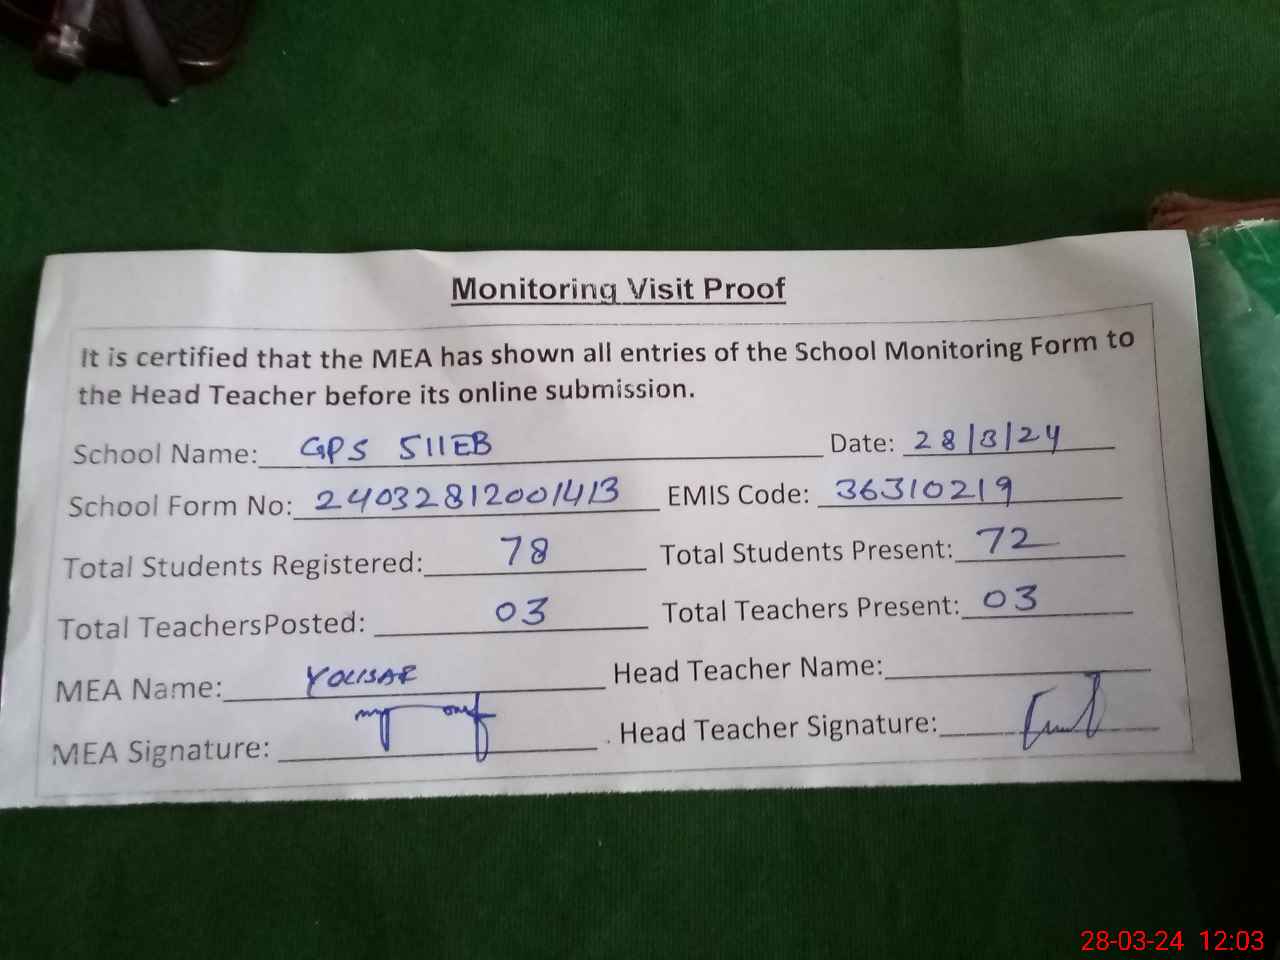 Monitoring Visit Proof
It is certified that the MEA has shown all entries of the School Monitoring Form to
the Head Teacher before its online submission.
School Name: GPS 511EB Date: 28/3/24
School Form No: 24032812001413 EMIS Code: 36310219
Total Students Registered: 78 Total Students Present: 72
Total TeachersPosted: 03 Total Teachers Present: 03
MEA Name: Head Teacher Name:
MEA Signature: Head Teacher Signature:
28-03-24 12:03